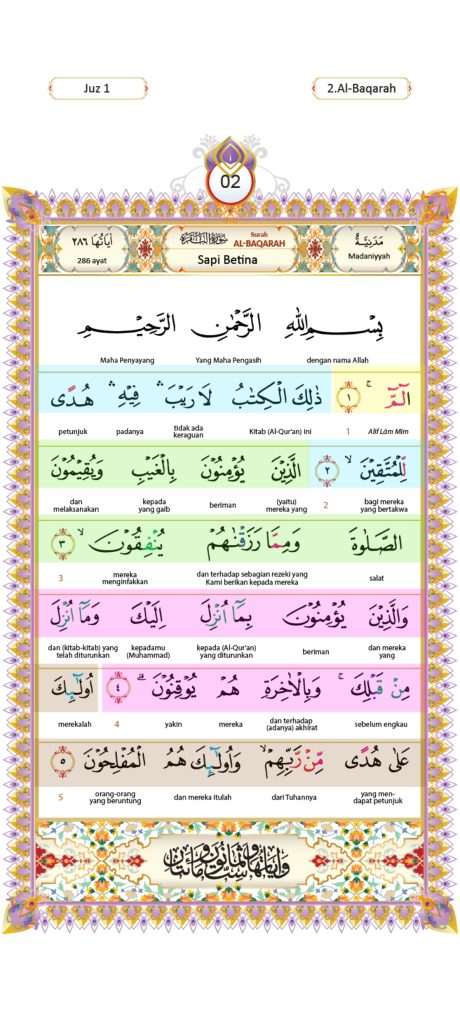 Juz 1
2.Al-Baqarah
١
02
اٰيَاتُهَا ٢٨٦
286 ayat
سُوْرَةُ الْبَقَرَة
Surah
AL-BAQARAH
Sapi Betina
مَدَنِيَّةٌ
Madaniyyah
بِسْمِ اللّٰهِ الرَّحْمٰنِ الرَّحِيْمِ
dengan nama Allah
Yang Maha Pengasih
Maha Penyayang
الۤمّۤ ۚ ١ ذٰلِكَ الْكِتٰبُ لَا رَيْبَ ۛ فِيْهِ ۛ هُدًى
Alif Lām Mim
1
Kitab (Al-Qur'an) ini
tidak ada keraguan
padanya
petunjuk
لِّلْمُتَّقِيْنَ ۙ ٢ الَّذِيْنَ يُؤْمِنُوْنَ بِالْغَيْبِ وَيُقِيْمُوْنَ
bagi mereka yang bertakwa
2
(yaitu) mereka yang
beriman
kepada yang gaib
dan melaksanakan
الصَّلٰوةَ وَمِمَّا رَزَقْنٰهُمْ يُنْفِقُوْنَ ۙ ٣
salat
dan terhadap sebagian rezeki yang Kami berikan kepada mereka
mereka menginfakkan
3
وَالَّذِيْنَ يُؤْمِنُوْنَ بِمَآ اُنْزِلَ اِلَيْكَ وَمَآ اُنْزِلَ
dan mereka yang
beriman
kepada (Al-Qur'an) yang diturunkan
kepadamu (Muhammad)
dan (kitab-kitab) yang telah diturunkan
مِنْ قَبْلِكَ ۚ وَبِالْاٰخِرَةِ هُمْ يُوْقِنُوْنَ ۗ ٤ اُولٰۤىِٕكَ
sebelum engkau
dan terhadap (adanya) akhirat
mereka
yakin
4
merekalah
عَلٰى هُدًى مِّنْ رَّبِّهِمْ ۙ وَاُولٰۤىِٕكَ هُمُ الْمُفْلِحُوْنَ ٥
yang men-
dapat petunjuk
dari Tuhannya
dan mereka itulah
orang-orang yang beruntung
5